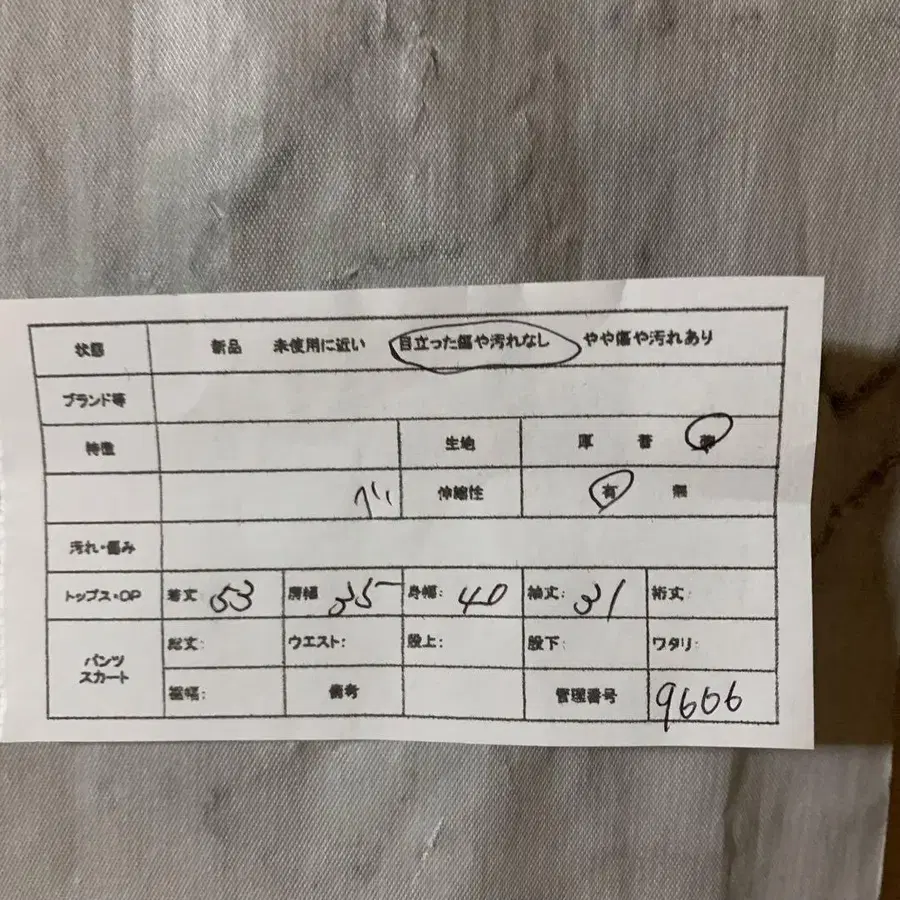 状態 新品 未使用に近い 目立った傷や汚れなし やや傷や汚れあり
ブランド等
特徴 生地 厚 普 薄
伸縮性 有 無
汚れ・傷み
トップス・OP 着丈: 53 肩幅: 35 身幅: 40 袖丈: 31 裄丈:
パンツ スカート 総丈: ウエスト: 股上: 股下: ワタリ:
裾幅: 備考 管理番号 9606